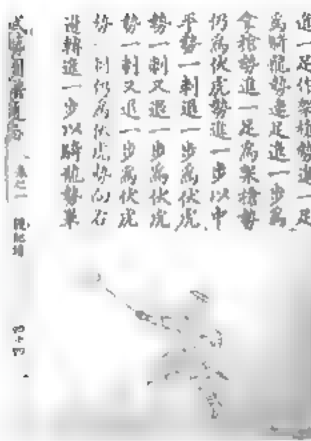 進一足作架槍勢進一足
為騎龍勢連足進一步為
拿槍勢進一足為架槍勢
仍為伏虎勢進一步以中
平勢一刺退一步為伏虎
勢一刺又退一步為伏虎
勢一刺又退一步為伏虎
勢一刺仍為伏虎勢向右
轉進一步以騎龍勢畢
武藝圖譜通志 卷之一 四十四